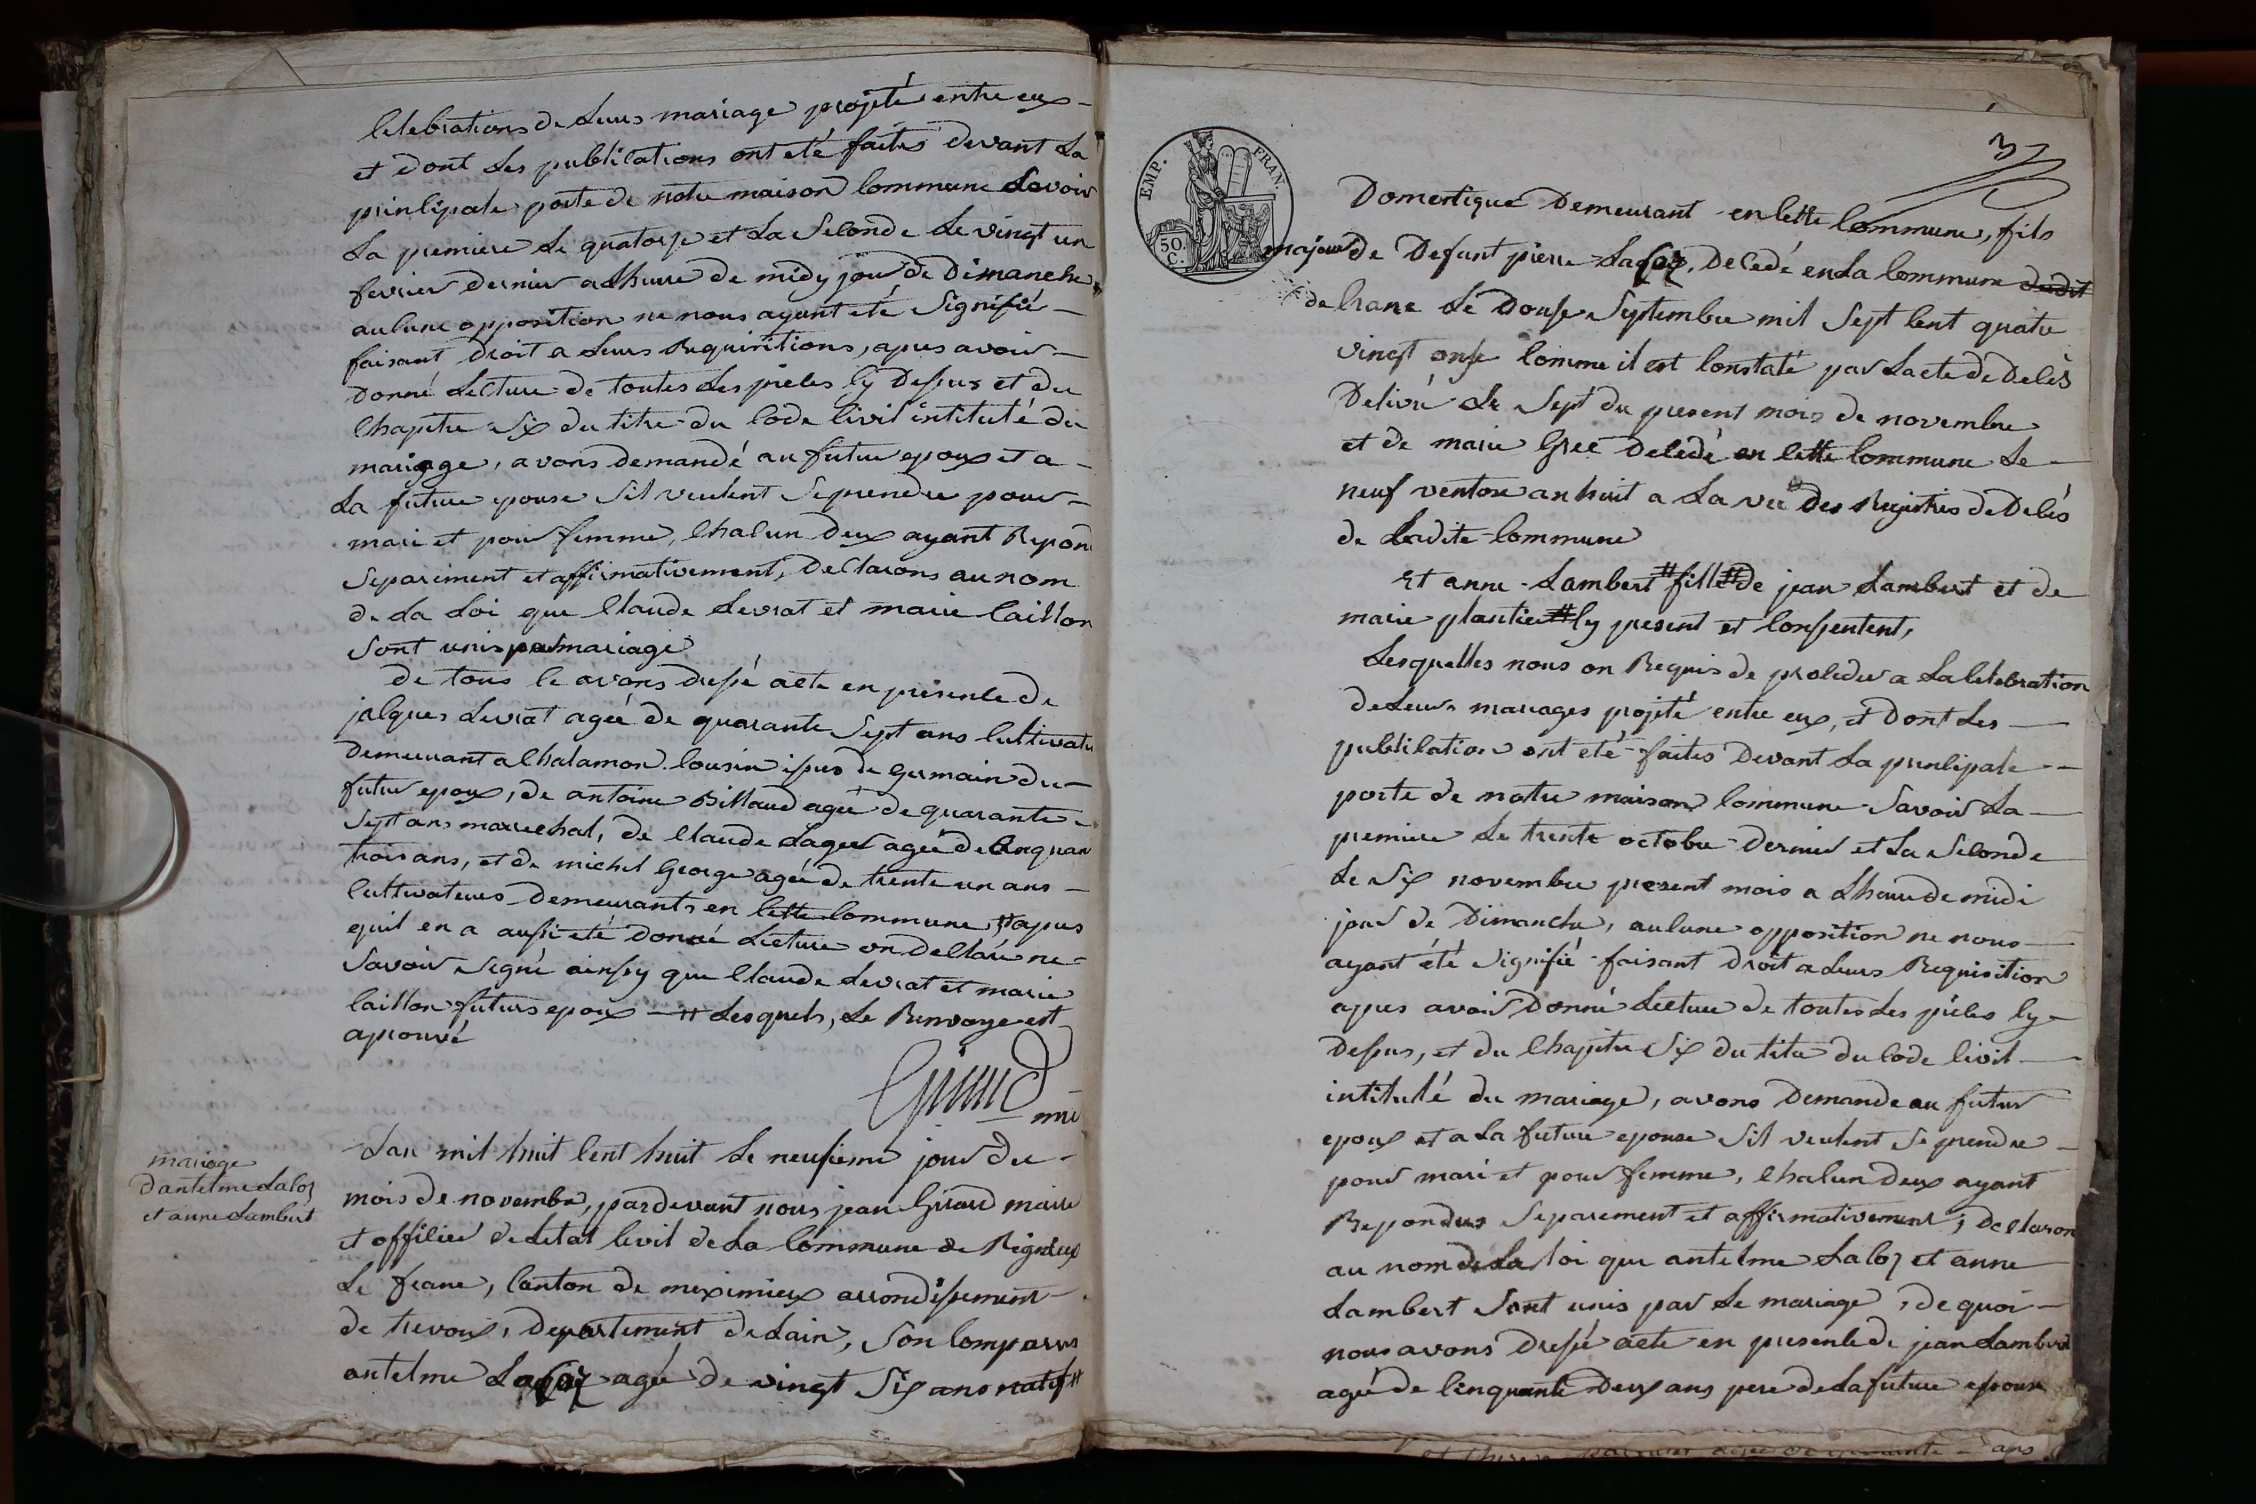 Celebrations de Leurs mariage projeté entre eux
et dont Les publications ont eté faites devant La
principale porte de notre maison Commune Savoir
La premiere Le quatorze et La Seconde Le vingt un
fevrier dernier a Lheure de midy jour de Dimanche
aucune opposition ne nous ayant eté Signifié
faisant droit a Leurs Requisitions, apres avoir
donné Lecture de toutes Les pieces Cy dessus et du
Chapitre Six du titre du Code Civil intitulé du
mariage, avons demandé au futur epoux et a
La future epouse Sil veulent Se prendre pour
mari et pour femme, Chacun deux ayant Repond
Separément et affirmativement, Declarons au nom
de La Loi que Claude Levrat et marie Caillon
Sont unis par mariage
de tous Ce avons dressé acte en présence de
jacques Levrat ageé de quarante Sept ans Cultivate
demeurant a Chalamon Cousin issus de germain du
futur epoux, de antoine Billaud ageé de quarante
Sept ans marechal, de Claude Lager ageé de Cinquan
trois ans, et de michel George ageé de trente un ans
Cultivateurs demeurants en Cette Commune # apres
quil en a aussi eté donné Lecture on declaré ne
Savoir Signé ainssy que Claude Levrat et marie
Caillon futurs epoux # Lesquels, Le Renvoye est
aprouvé
Girard
mre
mariage
dantelme Lacoz
et anne Lambert
Lan mil huit Cent huit Le neufieme jour du
mois de novembre, pardevant nous jean Girard maire
et officier de Letat Civil de La Commune de Rignieux
Le franc, Canton de meximieux arrondissement
de trevoux, departement de Lain, Son Comparus
antelme Lacoz agé de vingt Six ans natif #
3
EMP. FRAN.
50 C.
Domestique Demeurant en Cette Commune, fils
majeur de Defunt pierre Lacoz, Decedé en La Commune dudit
de Crane Le Douse Septembre mil Sept Cent quatre
vingt onse Comme il est Constaté par Lacte de Deces
Delivré Le Sept du present mois de novembre
et de marie Gree Decedé en Cette Commune Le
neuf ventose an huit a La vee des Registres de Decés
de Ladite Commune
Et anne Lambert # fille # de jean Lambert et de
marie plantier # Cy present et Conssentent,
Lesquelles nous on Requis de proceder a La Celebration
de Leurs mariages projeté entre eux, et dont Les
publication ont eté faites devant La principale
porte de notre maison Commune Savoir La
premiere Le trente octobre dernier et La Seconde
Le Six novembre present mois a Lheure de midi
jour de Dimanche, aucune opposition ne nous
ayant été Signifié faisant droit a Leurs Requisition
apres avoir Donné Lecture de toutes Les piéces Cy
Dessus, et du Chapitre Six du titre du Code Civil
intitulé du mariage, avons Demande au futur
epoux et a La future epouse Sil veulent Se prendre
pour mari et pour femme, Chacun deux ayant
Repondus Separement et affirmativement, declaron
au nom de La loi que antelme Lacoz et anne
Lambert Sont unis par Le mariage, de quoi
nous avons dressé acte en presence de jean Lambert
agé de Cinquante Deux ans pere de La future epouse